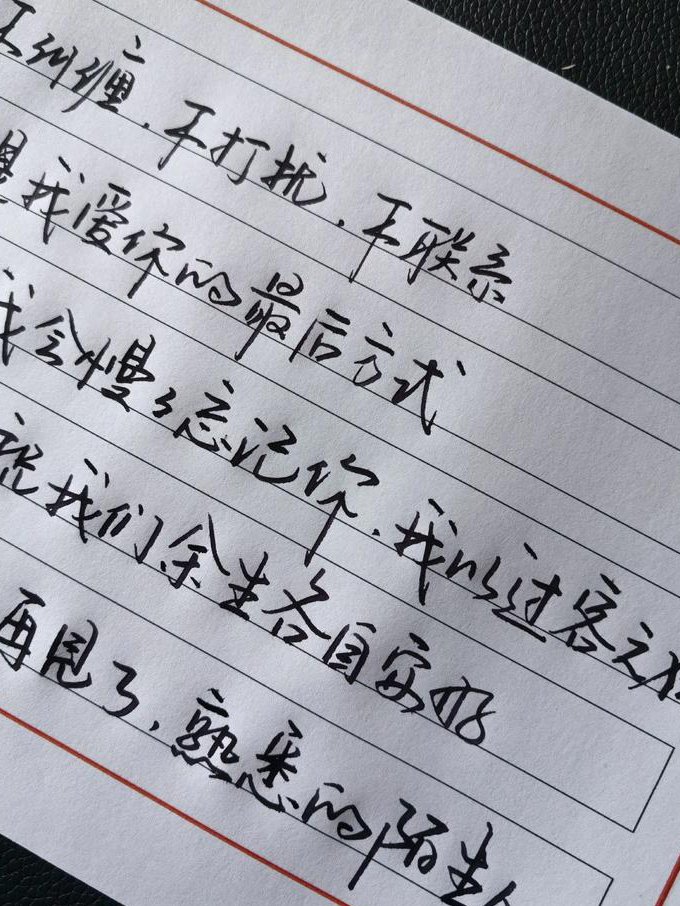 不纠缠，不打扰，不联系
是我爱你的最后方式
我会慢慢忘记你，我以过客之
我们余生各自安好
再见了，熟悉的陌生